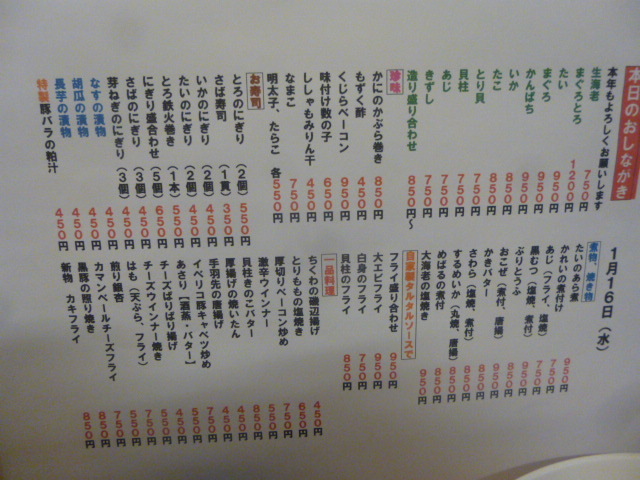 本日のおしながき
1月16日(水)
本年もよろしくお願いします
生海老 750円
まぐろとろ 1200円
たい 950円
まぐろ 950円
かんぱち 950円
いか 850円
たこ 850円
とり貝 750円
貝柱 750円
あじ 750円
きずし 750円
造り盛り合わせ 850円〜
珍味
かにのかぶら巻き 850円
もずく酢 450円
くじらベーコン 950円
味付け数の子 650円
ししゃもみりん干 450円
なまこ 750円
明太子、たらこ 各550円
お寿司
とろのにぎり (2個) 550円
さば寿司 (1貫) 350円
いかのにぎり (2個) 450円
たいのにぎり (2個) 450円
とろ鉄火巻き (1本) 550円
にぎり盛合わせ (5個) 650円
さばのにぎり (3個) 450円
芽ねぎのにぎり (3個) 450円
なすの漬物 450円
胡瓜の漬物 450円
長芋の漬物 450円
特製豚バラの粕汁 450円
煮物、焼き物
たいのあら煮 950円
かれいの煮付け 750円
あじ(フライ、塩焼) 750円
黒むつ(塩焼、煮付) 950円
ぶりとうふ 850円
おこぜ(煮付、唐揚) 950円
かきバター 850円
さわら(塩焼、煮付) 850円
するめいか(丸焼、唐揚) 850円
めばるの煮付 850円
大海老の塩焼き 950円
自家製タルタルソースで
フライ盛り合わせ 950円
大エビフライ 950円
白身のフライ 750円
貝柱のフライ 850円
一品料理
ちくわの磯辺揚げ 450円
とりももの塩焼き 650円
厚切りベーコン炒め 750円
激辛ウインナー 550円
貝柱きのこバター 850円
厚揚げの焼いたん 450円
手羽先の唐揚げ 450円
イベリコ豚キャベツ炒め 750円
あさり【酒蒸・バター】 550円
チーズぱりぱり揚げ 450円
チーズウインナー焼き 550円
はも(天ぷら、フライ) 750円
煎り銀杏 550円
カマンベールチーズフライ 750円
黒豚の照り焼き 850円
新物 カキフライ 850円